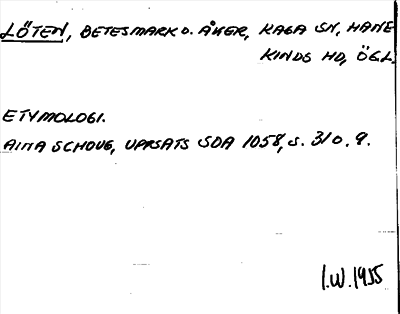 LÖTEN, BETESMARK O. ÅKER, KAGA SN, HANE
KINDS HD, ÖGL.
ETYMOLOGI.
AINA SCHOUG, UPPSATS SOA 1058, S. 31 O. 9.
I.W. 1955